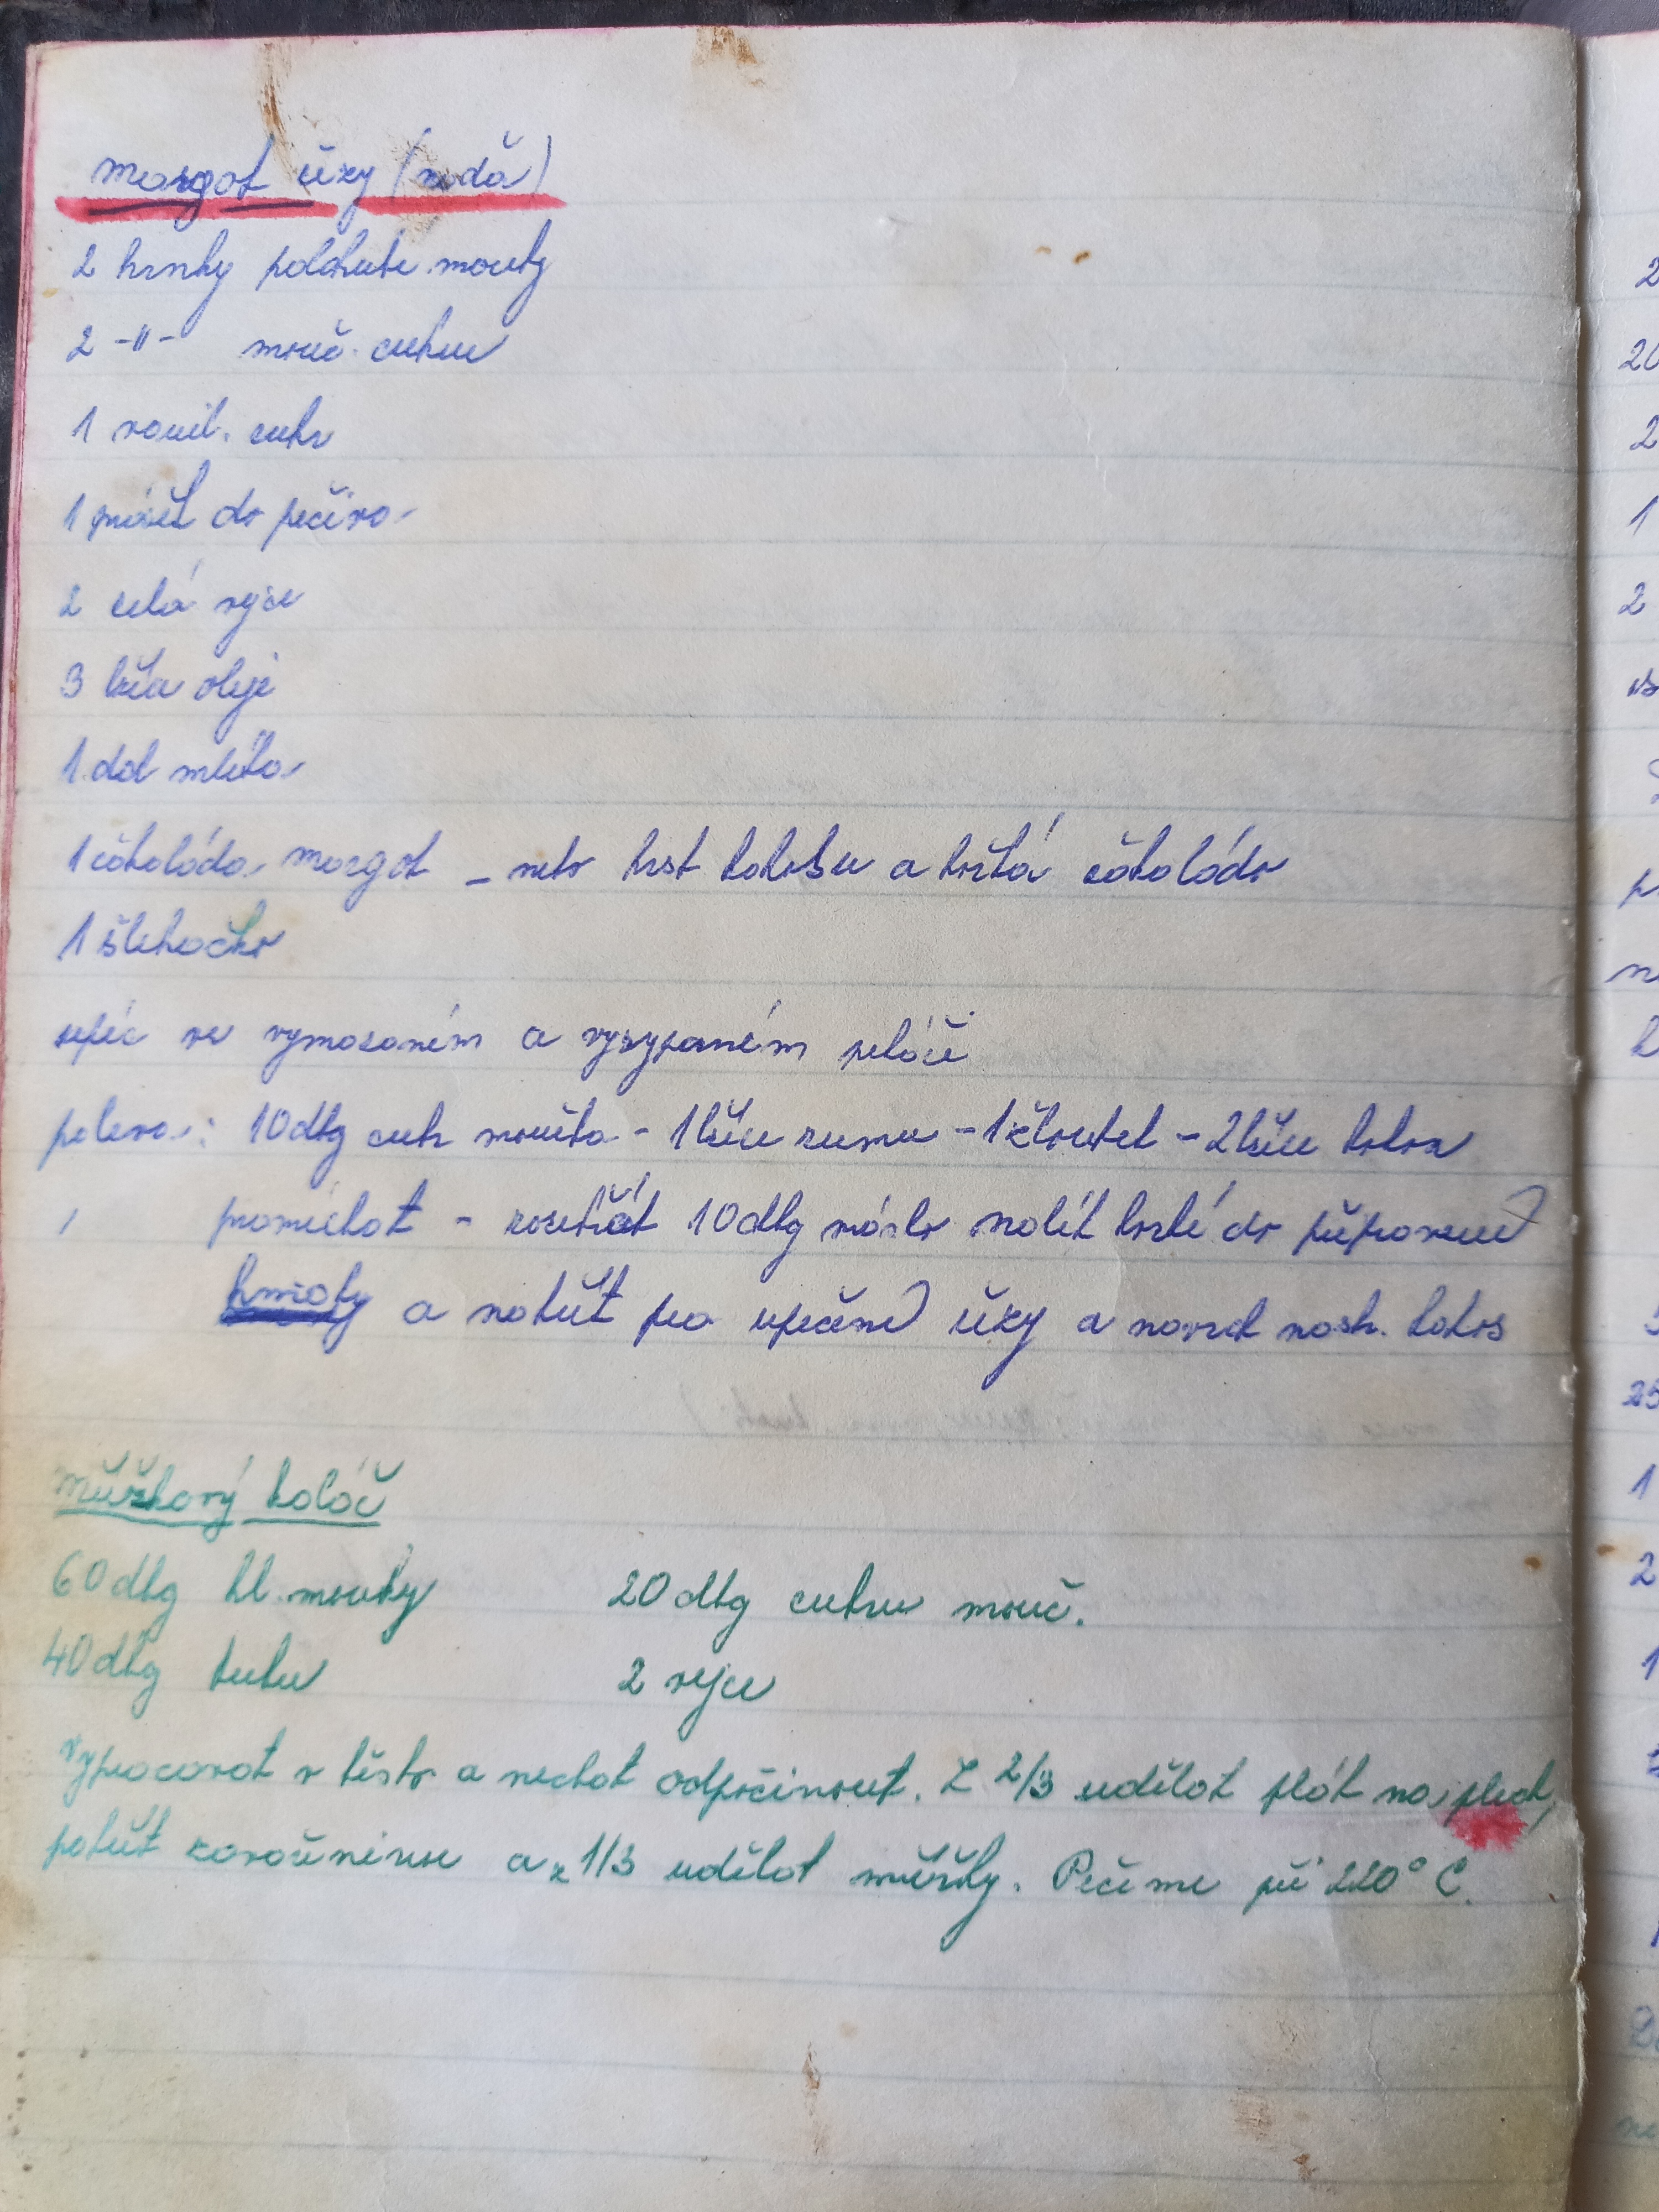 margot řezy (
2 hrnky polohrubé mouky
2 -"- mouč. cukru
1 vanil. cukr
1 prášek do pečiva
2 celá vejce
3 lžíce oleje
1 dcl mléka
1 čokoláda margot - nebo hrst kokosu a hořká čokoláda
1 šlehačka
upéc ve vymazaném a vysypaném pekáči
poleva: 10 dkg cukr moučka - 1 lžíce rumu - 1 žloutek - 2 lžíce kakaa
promíchat - rozehřát 10 dkg máslo nalít horké do připravené
hmoty a natřít po upečení řezy a navrch nastr. kokos
mřížkový koláč
60 dkg hl. mouky 20 dkg cukru mouč.
40 dkg tuku 2 vejce
Vypracovat v těsto a nechat odpočinout. Z 2/3 udělat plát na plech,
potřít zavařeninou a z 1/3 udělat mřížky. Pečeme při 220° C.
2
20
2
1
2
1
2
1